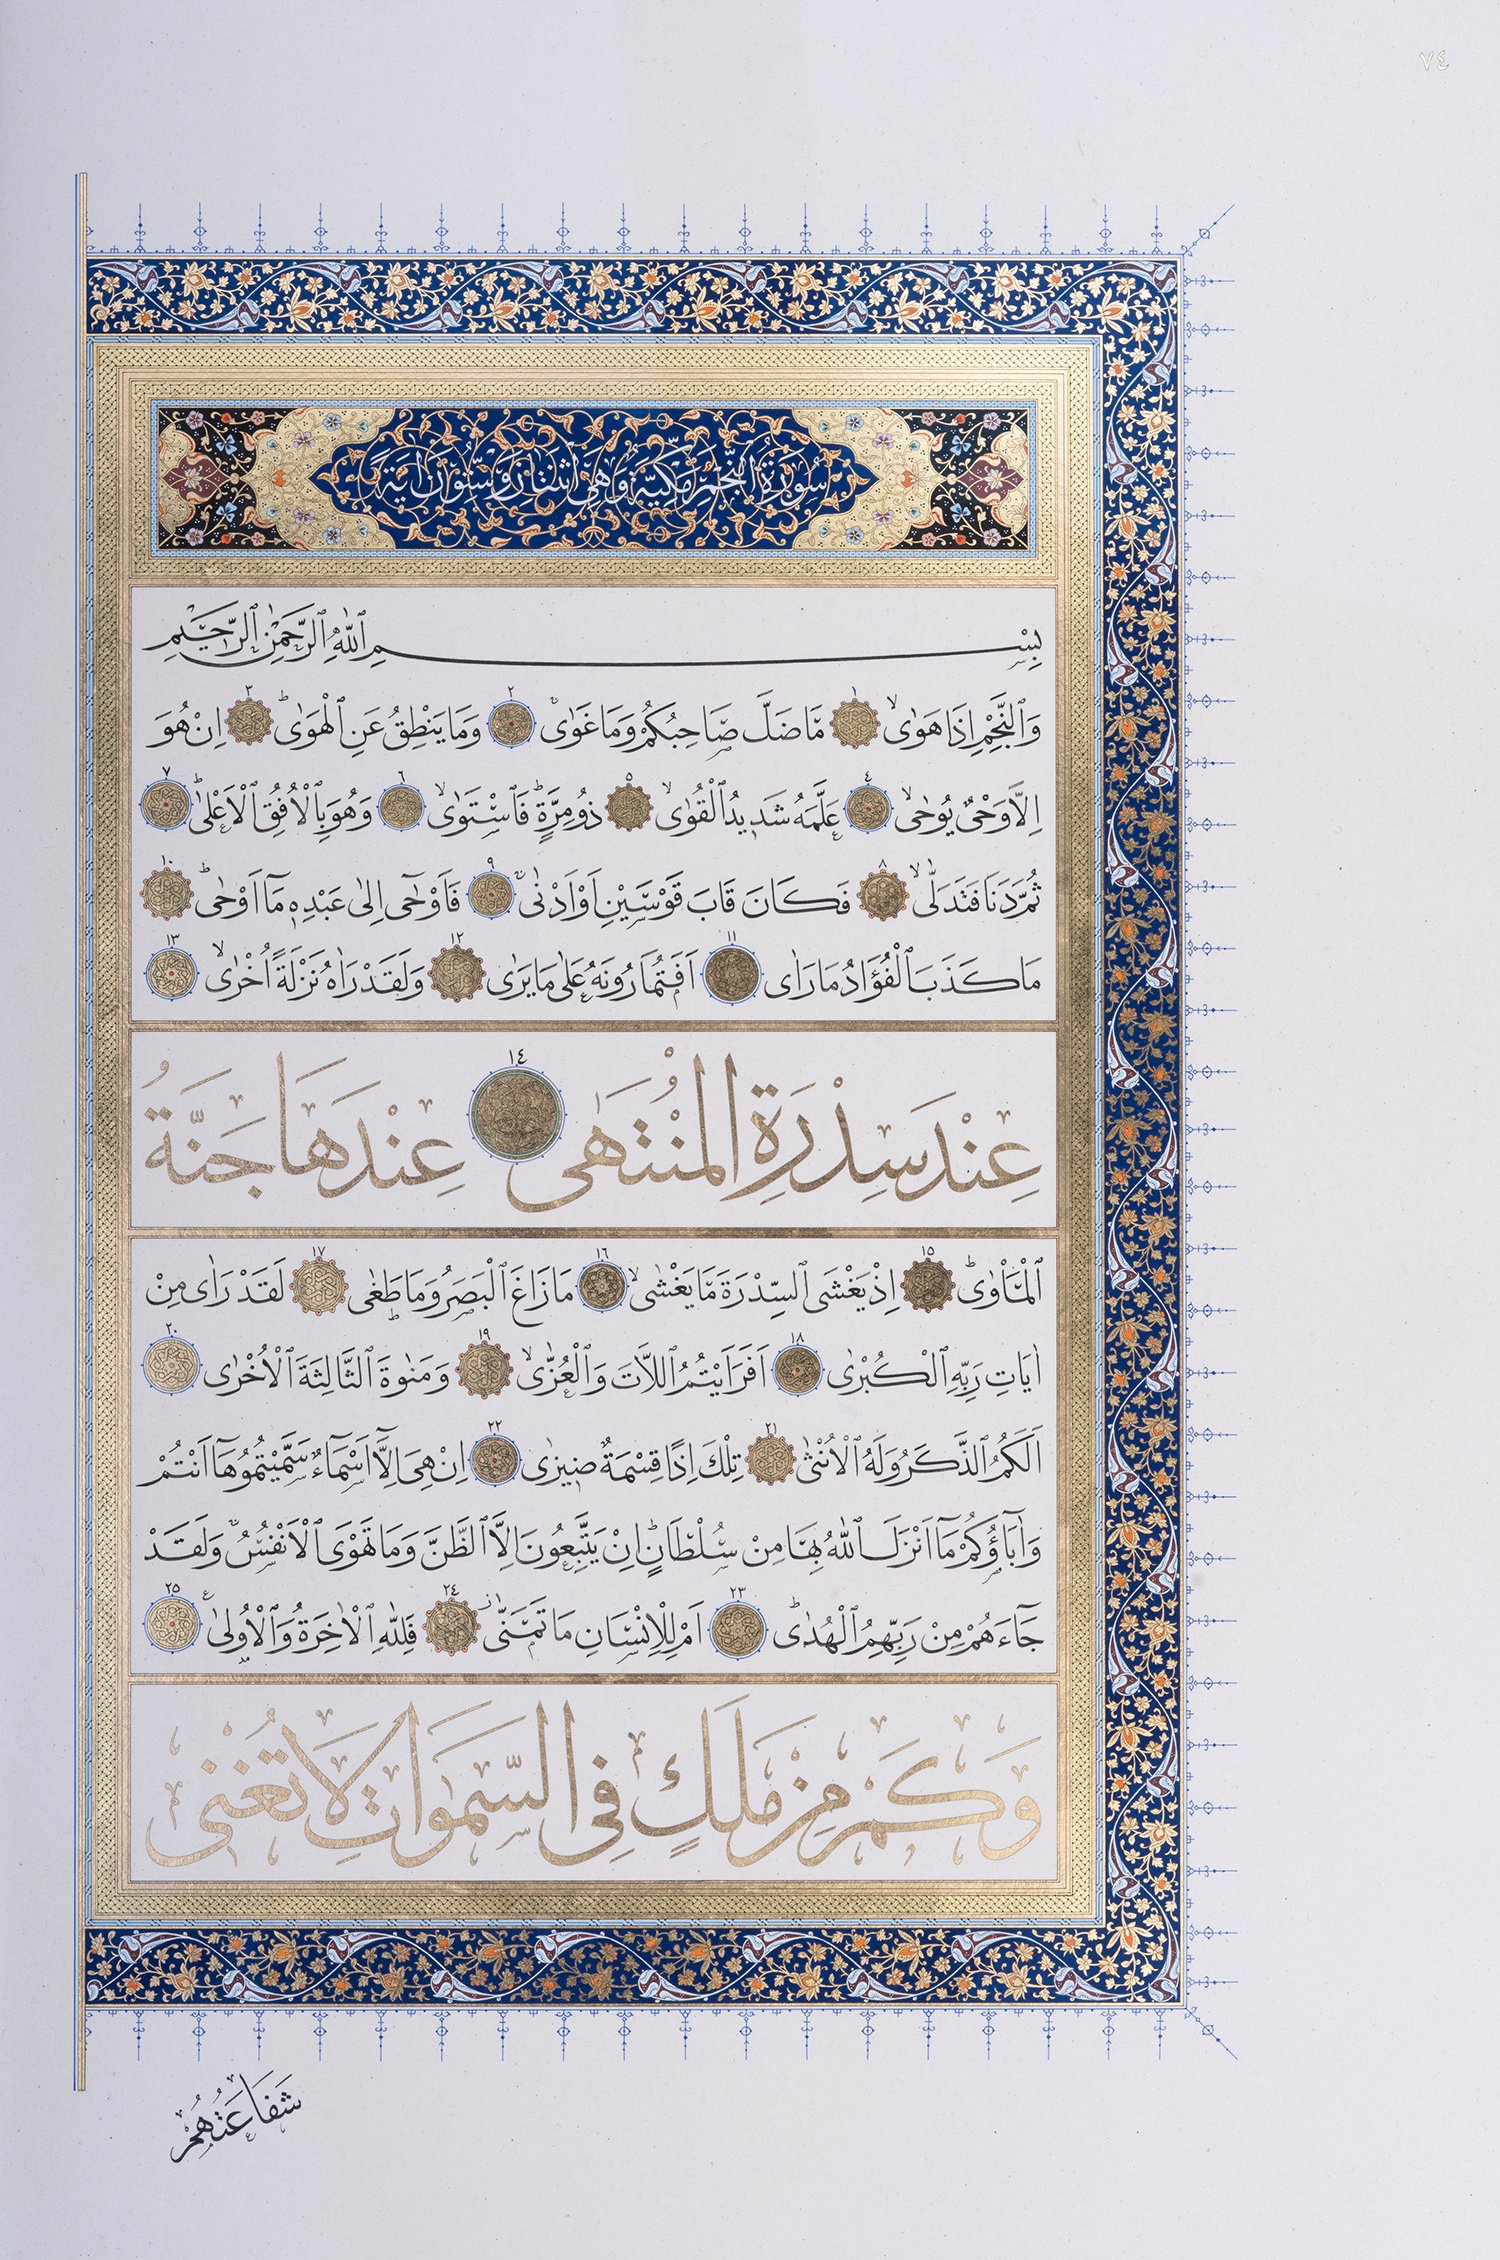 ٧٤
سُورَةُ النَّجْمِ مَكِّيَّةٌ وَهِيَ اثْنَتَانِ وَسِتُّونَ اٰيَةً
بِسْمِ ٱللّٰهِ ٱلرَّحْمٰنِ ٱلرَّحِيمِ
وَٱلنَّجْمِ اِذَا هَوٰىۙ ١ مَا ضَلَّ صَاحِبُكُمْ وَمَا غَوٰىۚ ٢ وَمَا يَنْطِقُ عَنِ ٱلْهَوٰىۜ ٣ اِنْ هُوَ
اِلَّا وَحْىٌ يُوحٰىۙ ٤ عَلَّمَهُ شَدٖيدُ ٱلْقُوٰىۙ ٥ ذُو مِرَّةٍۜ فَاسْتَوٰىۙ ٦ وَهُوَ بِٱلْاُفُقِ ٱلْاَعْلٰىۜ ٧
ثُمَّ دَنَا فَتَدَلّٰىۙ ٨ فَكَانَ قَابَ قَوْسَيْنِ اَوْ اَدْنٰىۚ ٩ فَاَوْحٰٓى اِلٰى عَبْدِهٖ مَٓا اَوْحٰىۜ ١٠
مَا كَذَبَ ٱلْفُؤَادُ مَا رَاٰى ١١ اَفَتُمَارُونَهُ عَلٰى مَا يَرٰى ١٢ وَلَقَدْ رَاٰهُ نَزْلَةً اُخْرٰىۙ ١٣
عِنْدَ سِدْرَةِ الْمُنْتَهٰى ١٤ عِنْدَهَا جَنَّةُ
ٱلْمَأْوٰىۜ ١٥ اِذْ يَغْشَى ٱلسِّدْرَةَ مَا يَغْشٰىۙ ١٦ مَا زَاغَ ٱلْبَصَرُ وَمَا طَغٰى ١٧ لَقَدْ رَاٰى مِنْ
اٰيَاتِ رَبِّهِ ٱلْكُبْرٰى ١٨ اَفَرَاَيْتُمُ ٱللَّاتَ وَٱلْعُزّٰىۙ ١٩ وَمَنٰوةَ ٱلثَّالِثَةَ ٱلْاُخْرٰى ٢٠
اَلَكُمُ ٱلذَّكَرُ وَلَهُ ٱلْاُنْثٰى ٢١ تِلْكَ اِذًا قِسْمَةٌ ضٖيزٰى ٢٢ اِنْ هِىَ اِلَّٓا اَسْمَٓاءٌ سَمَّيْتُمُوهَٓا اَنْتُمْ
وَاٰبَٓاؤُكُمْ مَٓا اَنْزَلَ ٱللّٰهُ بِهَا مِنْ سُلْطَانٍۜ اِنْ يَتَّبِعُونَ اِلَّا ٱلظَّنَّ وَمَا تَهْوَى ٱلْاَنْفُسُۚ وَلَقَدْ
جَٓاءَهُمْ مِنْ رَبِّهِمُ ٱلْهُدٰىۜ ٢٣ اَمْ لِلْاِنْسَانِ مَا تَمَنّٰىۘ ٢٤ فَلِلّٰهِ ٱلْاٰخِرَةُ وَٱلْاُولٰى ٢٥
وَكَمْ مِنْ مَلَكٍ فِى السَّمٰوَاتِ لَا تُغْنٖى
شَفَاعَتُهُمْ